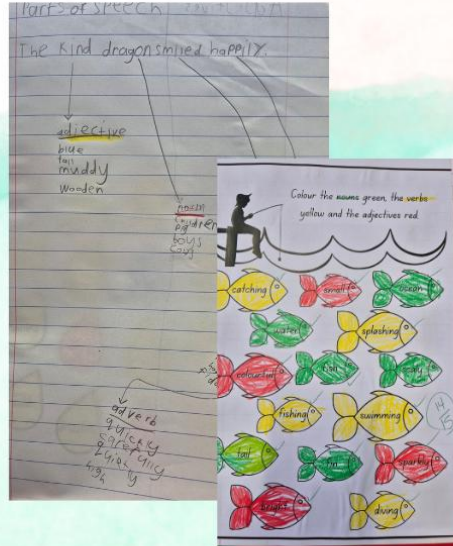 Parts of Speech
The kind dragon smiled happily.
adjective
blue
tall
muddy
wooden
noun
children
pig
boys
adverb
quickly
carefully
quietly
high
Colour the nouns green, the verbs
yellow and the adjectives red.
catching
small
ocean
water
splashing
colourful
fish
fishing
swimming
tail
sparkly
bright
diving
14